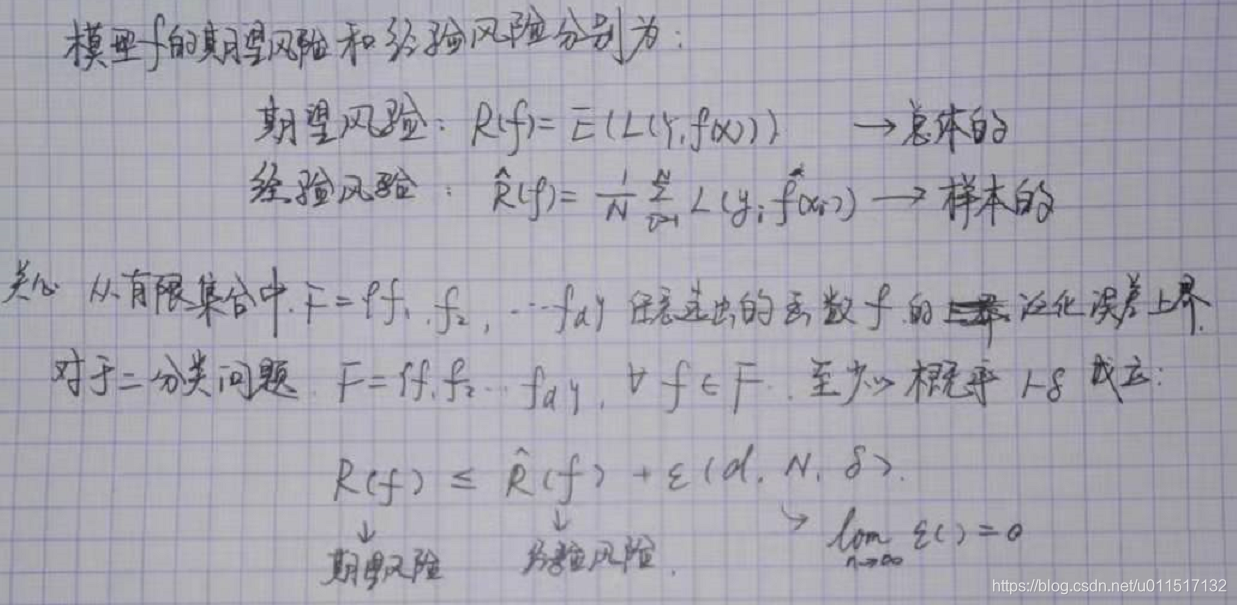 模型f的期望风险和经验风险分别为:
期望风险: R(f)=E(L(Y,f(x))) → 总体的
经验风险: R̂(f)= 1/N Σ_{i=1}^{N} L(y_i f(x_i)) → 样本的
关心 从有限集合中 F={f_1, f_2, ...f_d} 任意选出的函数f的 泛化误差上界.
对于二分类问题. F={f_1 f_2... f_d}, ∀ f∈F. 至少以概率1-δ成立:
R(f) ≤ R̂(f) + ε(d, N, δ).
↓ ↓ ↘ lim_{n→∞} ε( )=0
期望风险 经验风险.
https://blog.csdn.net/u011517132